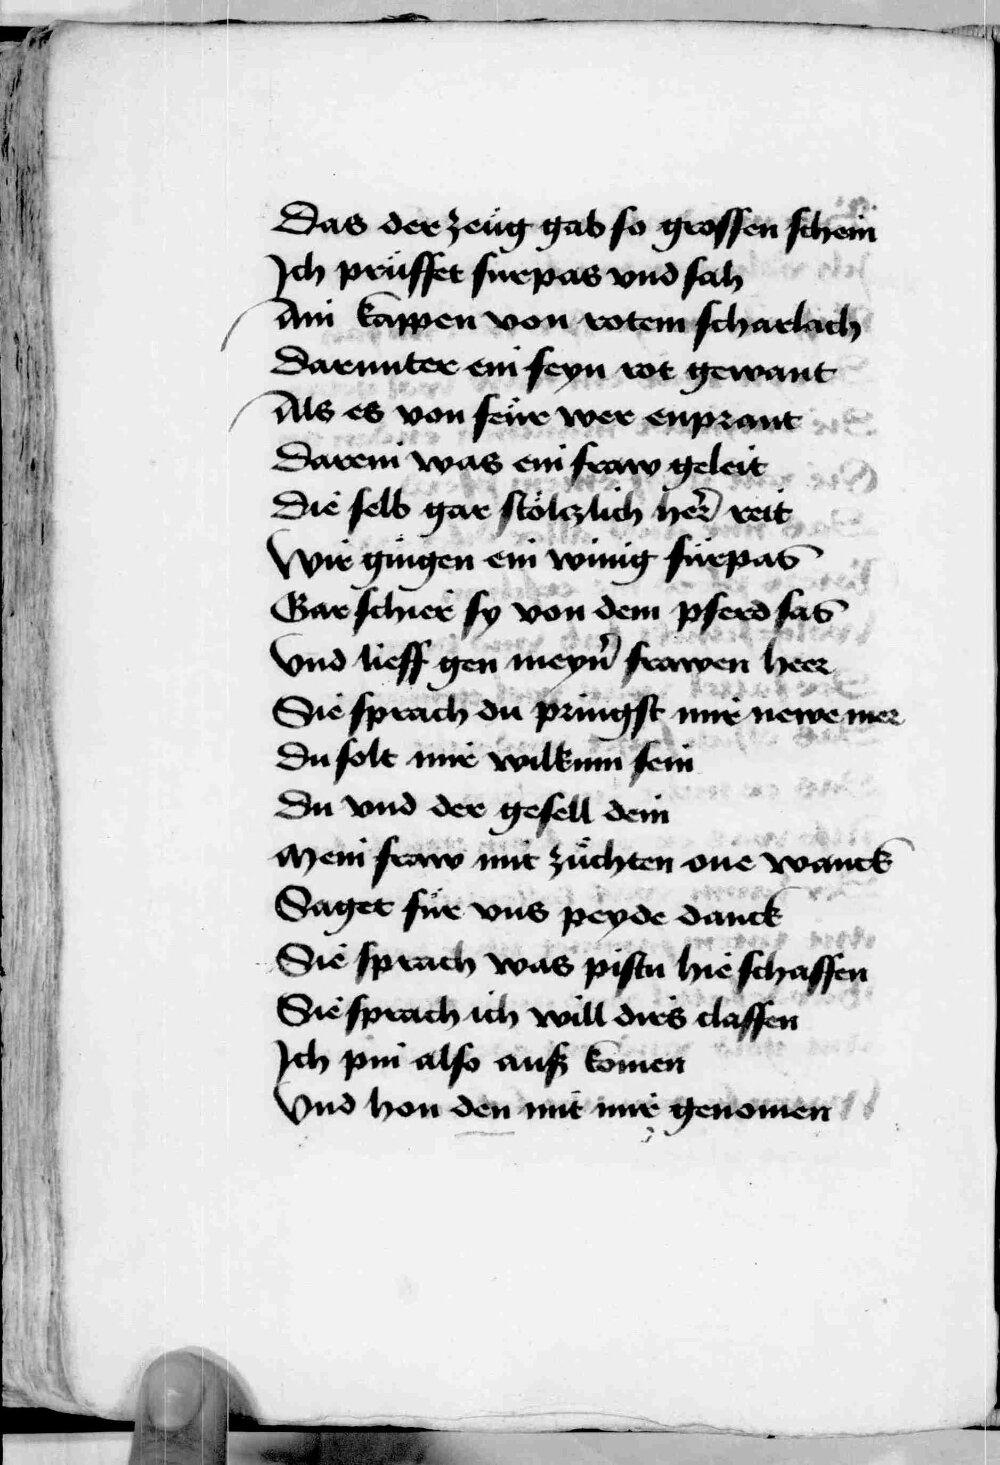 Das der zeüg gab so grossen schein
Ich prüffet fürpas vnd sah
Ain kappen von rotem scharlach
Darunter ein feyn rot gewant
Als es von feür wer enprant
Darein was ein fraw geleit
Die selb gar stölczlich her̃ reit
Wir gingen ein winig fürpas
Gar schier sy von dem pferd sas
Vnd lieff gen meyn̄ frawen heer
Sie sprach du pringst mir newe mer
Du solt mir wilkum sein
Du vnd der gesell dein
Mein fraw mit züchten one wanck
Saget für vns peyde danck
Sie sprach was pistu hie schaffen
Sie sprach ich will dirs claffen
Ich pin also auß komen
Vnd hon den mit mir genomen